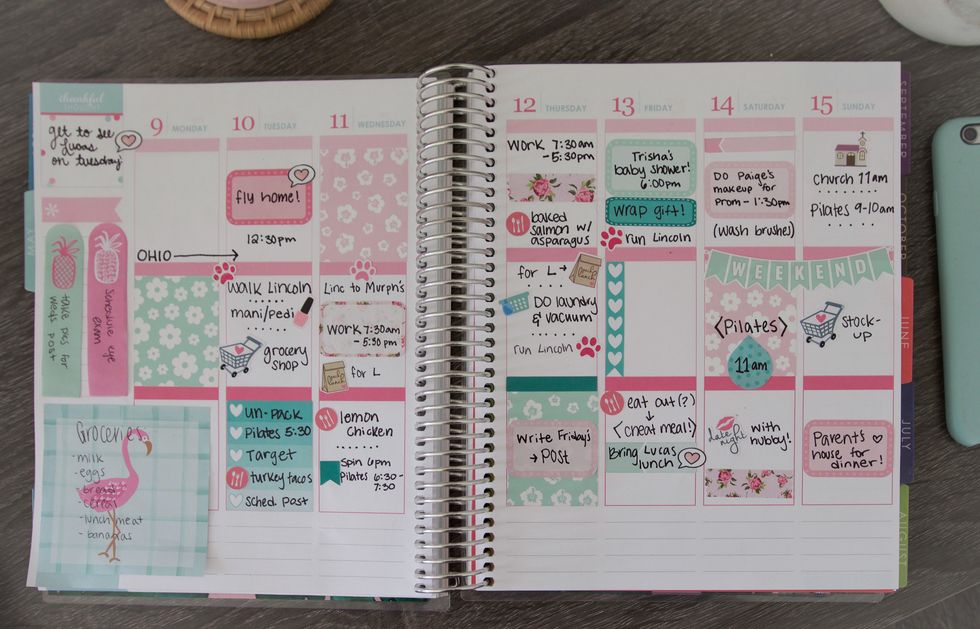 thankful
get to see
Lucas
on tuesday
take pics for
weds post
Schedule eye
exam
Groceries
- milk
- eggs
- bread
- cereal
- lunch meat
- bananas
9 MONDAY
OHIO
10 TUESDAY
fly home!
12:30pm
walk Lincoln
mani/pedi
grocery
shop
un-pack
Pilates 5:30
Target
turkey tacos
Sched. post
11 WEDNESDAY
Linc to Murph's
work 7:30am
- 5:30pm
for L
lemon
chicken
Spin 6pm
Pilates 6:30-
7:30
12 THURSDAY
work 7:30am
- 5:30pm
baked
salmon w/
asparagus
for L
DO laundry
& vacuum
run Lincoln
Write Friday's
Post
13 FRIDAY
Trisha's
baby shower!
6:00pm
wrap gift!
run Lincoln
eat out(?)
(cheat meal!)
Bring Lucas
lunch
14 SATURDAY
DO Paige's
makeup for
prom - 1:30pm
(wash brushes)
WEEKEND
(Pilates)
11am
date
night with
hubby!
15 SUNDAY
Church 11am
Pilates 9-10am
stock-
up
Parent's
house for
dinner!
SEPTEMBER
OCTOBER
MAY
JUNE
JULY
AUGUST